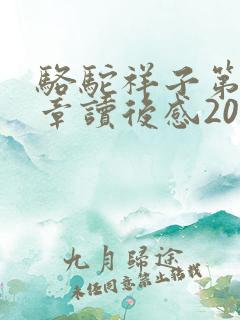 駱駝祥子第
章讀後感20
九月歸途
未經同意禁止轉載